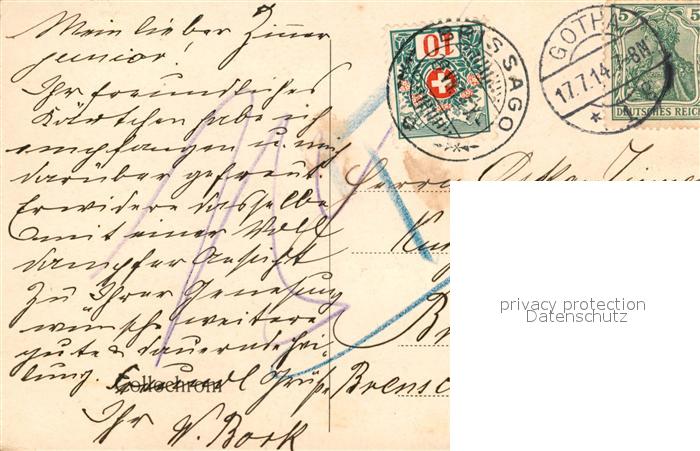 Mein lieber Zinner
senior!
Ihr freundliches
Kärtchen habe ich
empfangen u. mich
darüber gefreut.
Erwidere dasselbe
mit einer Voll
dampfer Ansicht
Zu Ihrer Genesung
wünsche weitere
gute & dauernde Hei-
lung Grüße
Collochrom
Ihr W. Bock
10
BRISSAGO
GOTHA
17.7.14. 7-8N
5
DEUTSCHES REICH
Herrn
privacy protection
Datenschutz